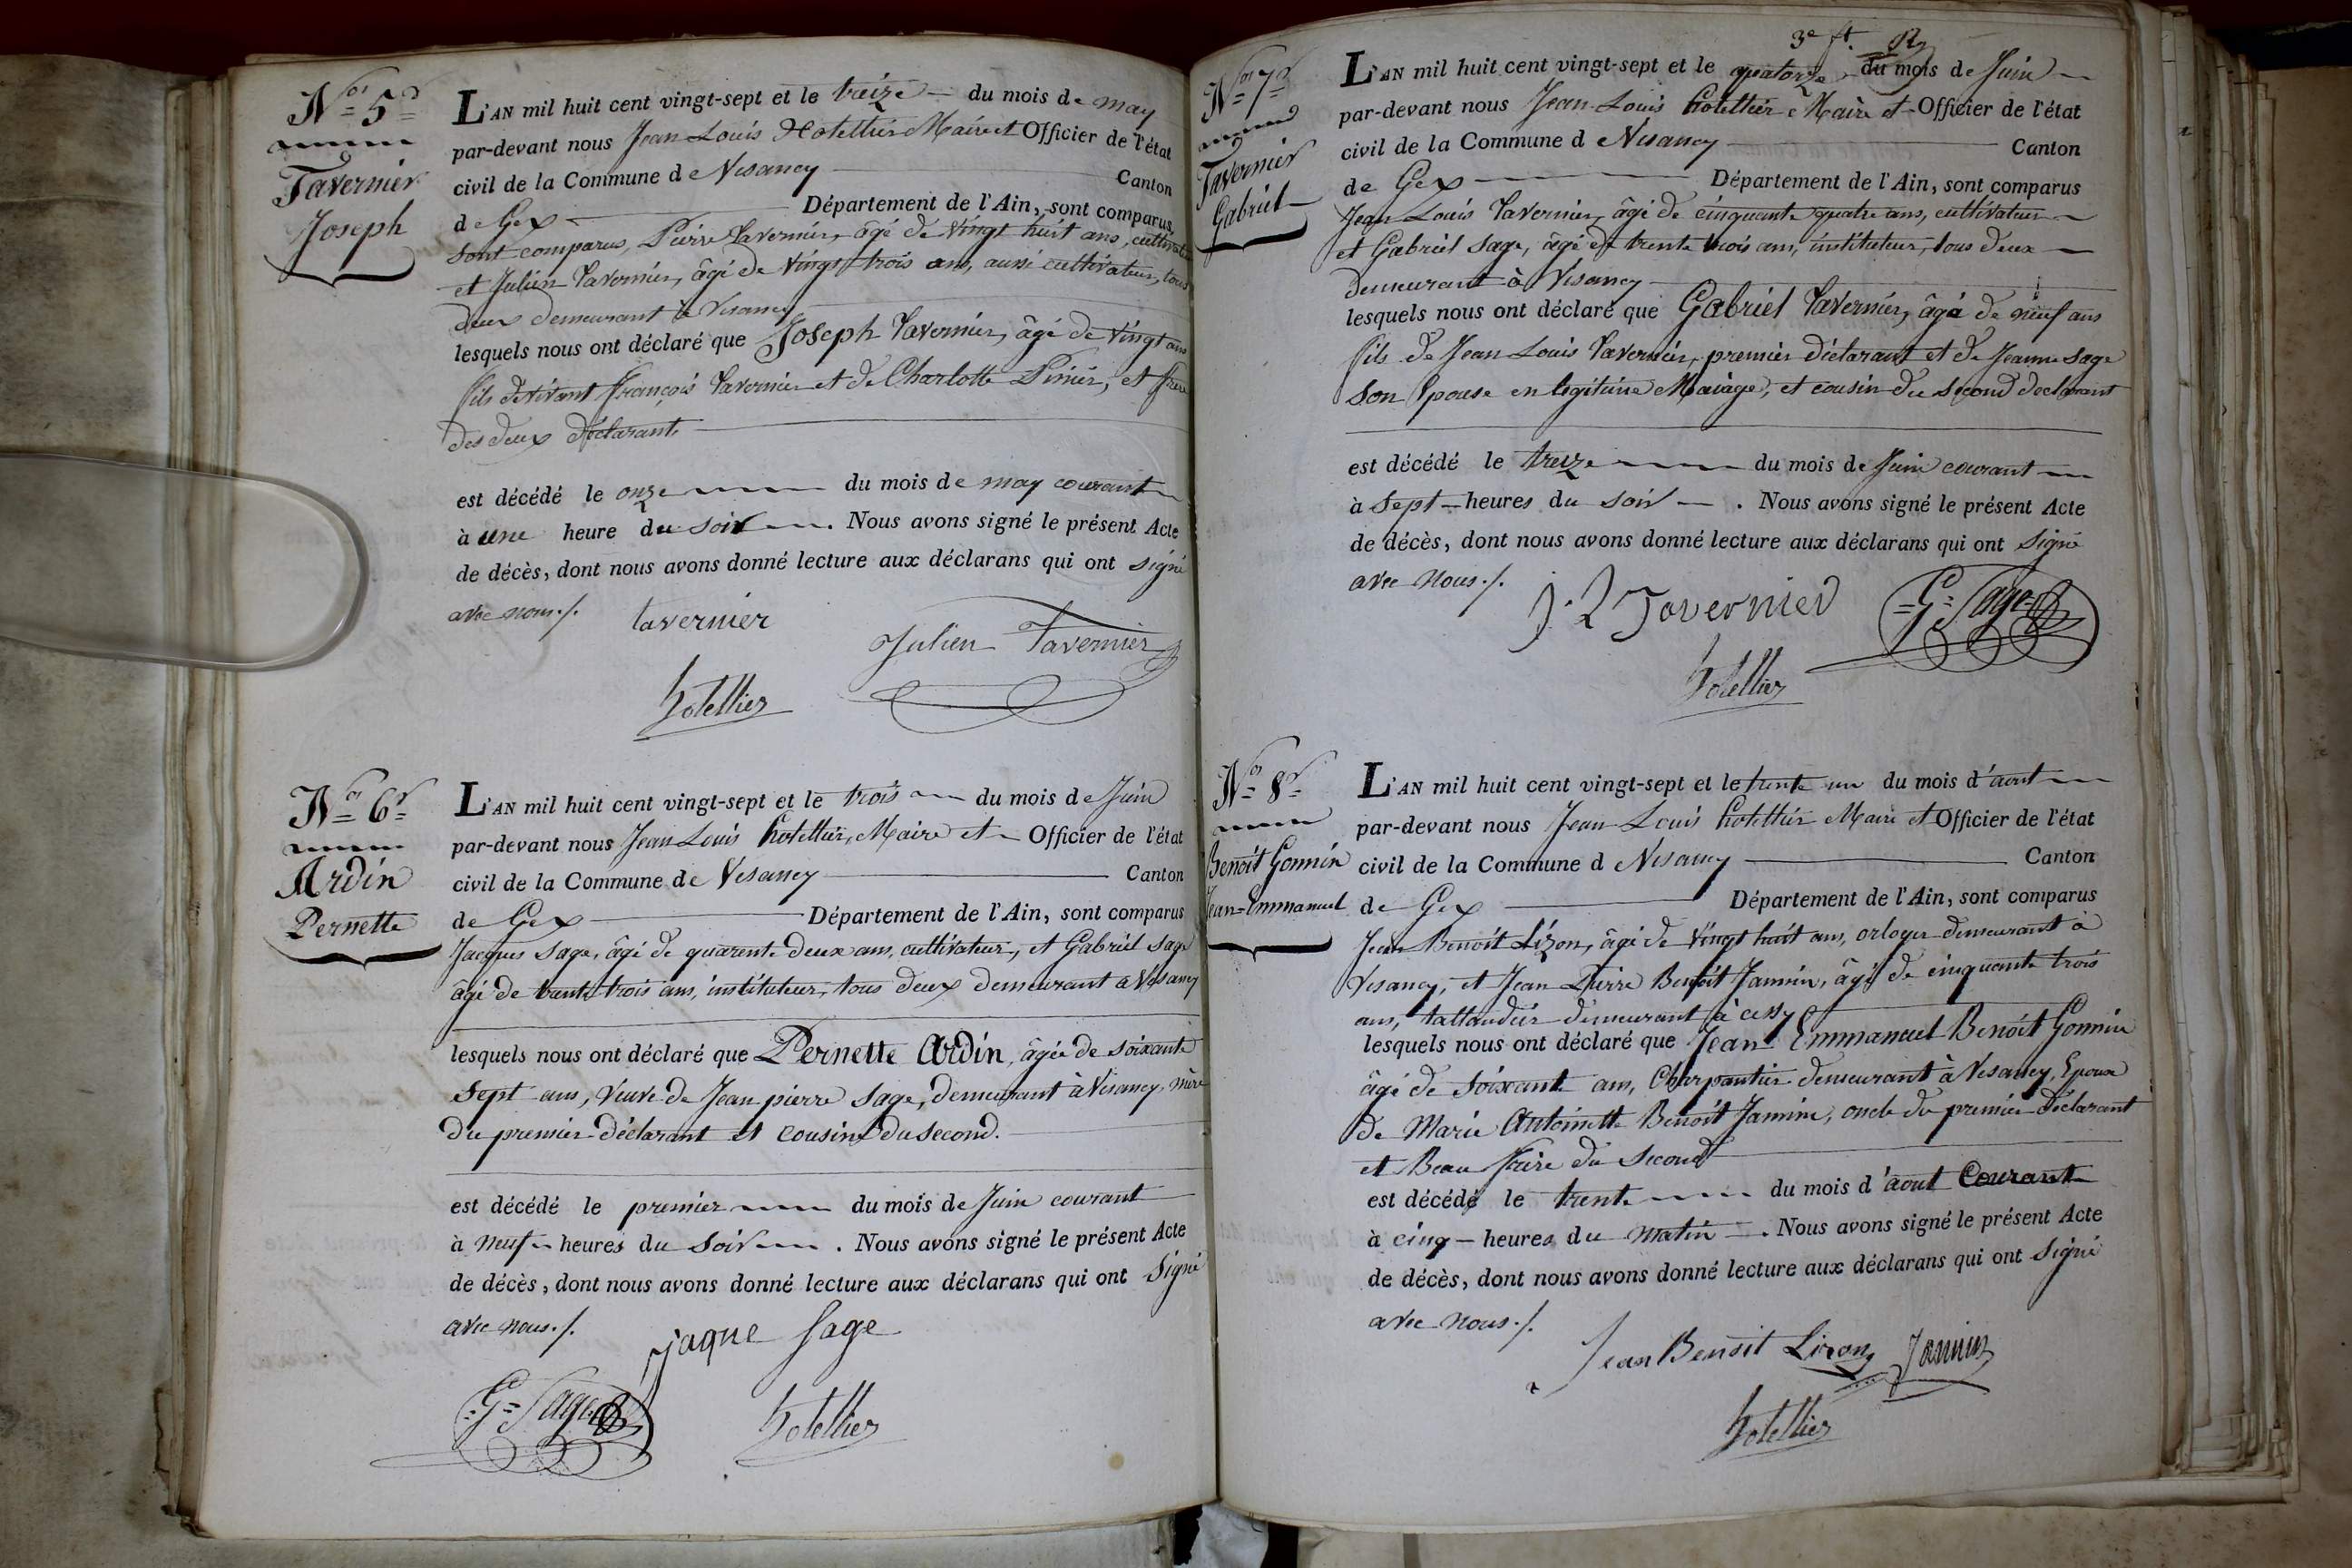 No 5
Tavernier
Joseph
L'AN mil huit cent vingt-sept et le treize du mois de may
par-devant nous Jean Louis Hotellier Maire et Officier de l'état
civil de la Commune de Vesancy Canton
de Gex Département de l'Ain, sont comparus,
sont comparus, Pierre Tavernier, âgé de vingt huit ans, cultivateur
et Julien Tavernier, âgé de vingt trois ans, aussi cultivateur, tous
deux demeurant à Vesancy
lesquels nous ont déclaré que Joseph Tavernier, âgé de vingt ans
fils de vivant François Tavernier et de Charlotte et frère
des deux déclarants
est décédé le onze du mois de may courant
à une heure du soir. Nous avons signé le présent Acte
de décès, dont nous avons donné lecture aux déclarans qui ont signé
avec nous ./.
tavernier
Julien Tavernier
hotellier
No 6
Ardin
Pernette
L'AN mil huit cent vingt-sept et le trois du mois de Juin
par-devant nous Jean Louis hotellier, Maire et Officier de l'état
civil de la Commune de Vesancy Canton
de Gex Département de l'Ain, sont comparus
Jacques Sage, âgé de quarente deux ans, cultivateur, et Gabriel Sage
âgé de trente trois ans, instituteur, tous deux demeurant a Vesancy
lesquels nous ont déclaré que Pernette Ardin, âgée de soixante
sept ans, veuve de Jean pierre Sage, demeurant à Vesancy, mère
du premier déclarant et cousine du second.
est décédé le premier du mois de Juin courant
à neuf heures du soir. Nous avons signé le présent Acte
de décès, dont nous avons donné lecture aux déclarans qui ont signé
avec nous ./.
jaque Sage
G Sage
hotellier
3e ft.
No 7
Tavernier
Gabriel
L'AN mil huit cent vingt-sept et le quatorze du mois de Juin
par-devant nous Jean Louis hotellier Maire et Officier de l'état
civil de la Commune d Vesancy Canton
de Gex Département de l'Ain, sont comparus
Jean Louis Tavernier, âgé de cinquante quatre ans, cultivateur
et Gabriel Sage, âgé de trente trois ans, instituteur, tous deux
demeurant à Vesancy
lesquels nous ont déclaré que Gabriel Tavernier, âgé de neuf ans
fils de Jean Louis Tavernier, premier déclarant et de Jeanne Sage
son Epouse en légitime Mariage, et cousin du second declarant
est décédé le treize du mois de Juin courant
à sept heures du soir. Nous avons signé le présent Acte
de décès, dont nous avons donné lecture aux déclarans qui ont signé
avec nous ./.
J. L Tavernier
G Sage
hotellier
No 8
Benoît Gonnin
Jean-Emmanuel
L'AN mil huit cent vingt-sept et le trente un du mois d'aout
par-devant nous Jean Louis hotellier Maire et Officier de l'état
civil de la Commune d Vesancy Canton
de Gex Département de l'Ain, sont comparus
Jean Benoît Lizon, âgé de vingt huit ans, orloger demeurant à
Vesancy, et Jean Pierre Benoît Jannin, âgé de cinquante trois
ans, taillandier demeurant à cessy
lesquels nous ont déclaré que Jean Emmanuel Benoît Gonnin
âgé de soixante ans, Charpantier demeurant à Vesancy, Epoux
de Marie Antoinette Benoît Jannin, oncle du premier déclarant
et Beau frère du second
est décédé le trente du mois d'aout Courant
à cinq heures du matin. Nous avons signé le présent Acte
de décès, dont nous avons donné lecture aux déclarans qui ont signé
avec nous ./.
Jean Benoit Lizon
Jannin
hotellier